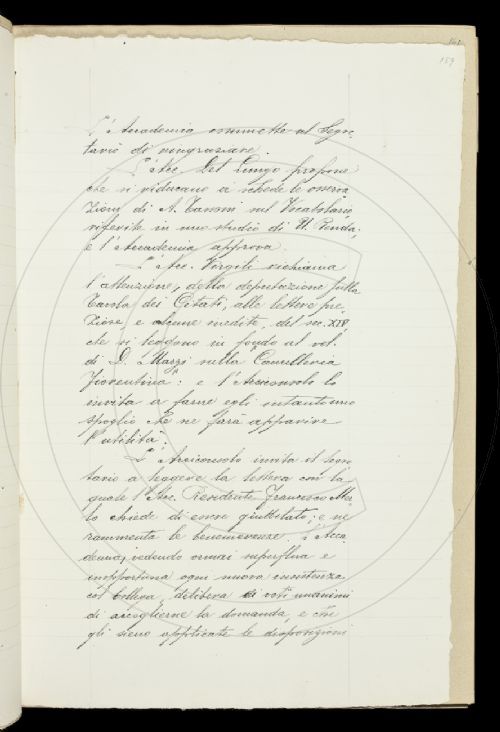 141
159
L'Accademia commette al Segre-
tario di ringraziare.
L'Acc. Del Lungo propone
che si riducano a schede le osserva-
zioni di A. Tassoni sul Vocabolario,
riferite in uno studio di U. Renda;
e l'Accademia approva.
L'Acc. Virgili richiama
l'attenzione, della deputazione sulla
Tavola dei Citati, alle lettere pre-
ziose, e alcune inedite, del sec. XIV
che si leggono in fondo al vol.
di D. Marzi sulla Cancelleria
Fiorentina: e l'Arciconsolo lo
invita a farne egli intanto uno
spoglio che ne farà apparire
l'utilità.
L'Arciconsolo invita il Segre-
tario a leggere la lettera con la
quale l'Acc. Residente Francesco
chiede di essere giubilato; e ne
rammenta le benemerenze. L'Acca-
demia, vedendo ormai superflua e
inopportuna ogni nuova insistenza
col Collega, delibera di voti unanimi
di accoglierne la domanda, e che
gli sieno applicate le disposizioni